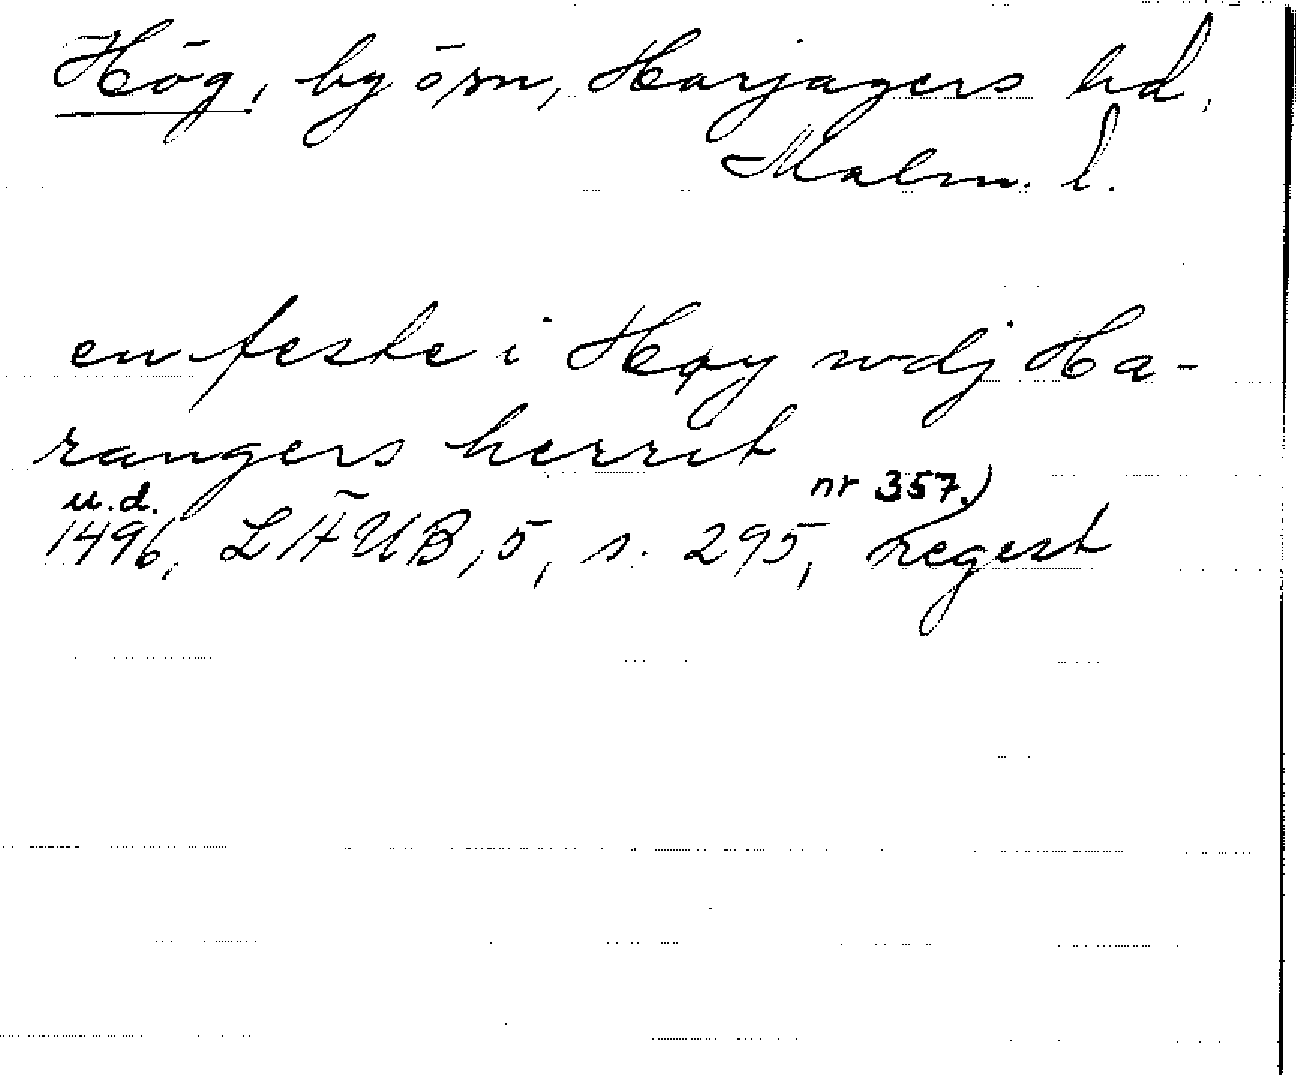 Hög, by ösn, Harjagers hd,
Malm. l.
en feste i Høy wdj Ha-
rangers herrit
u.d. nr 357.)
1496, LÄUB, 5, s. 295, regest